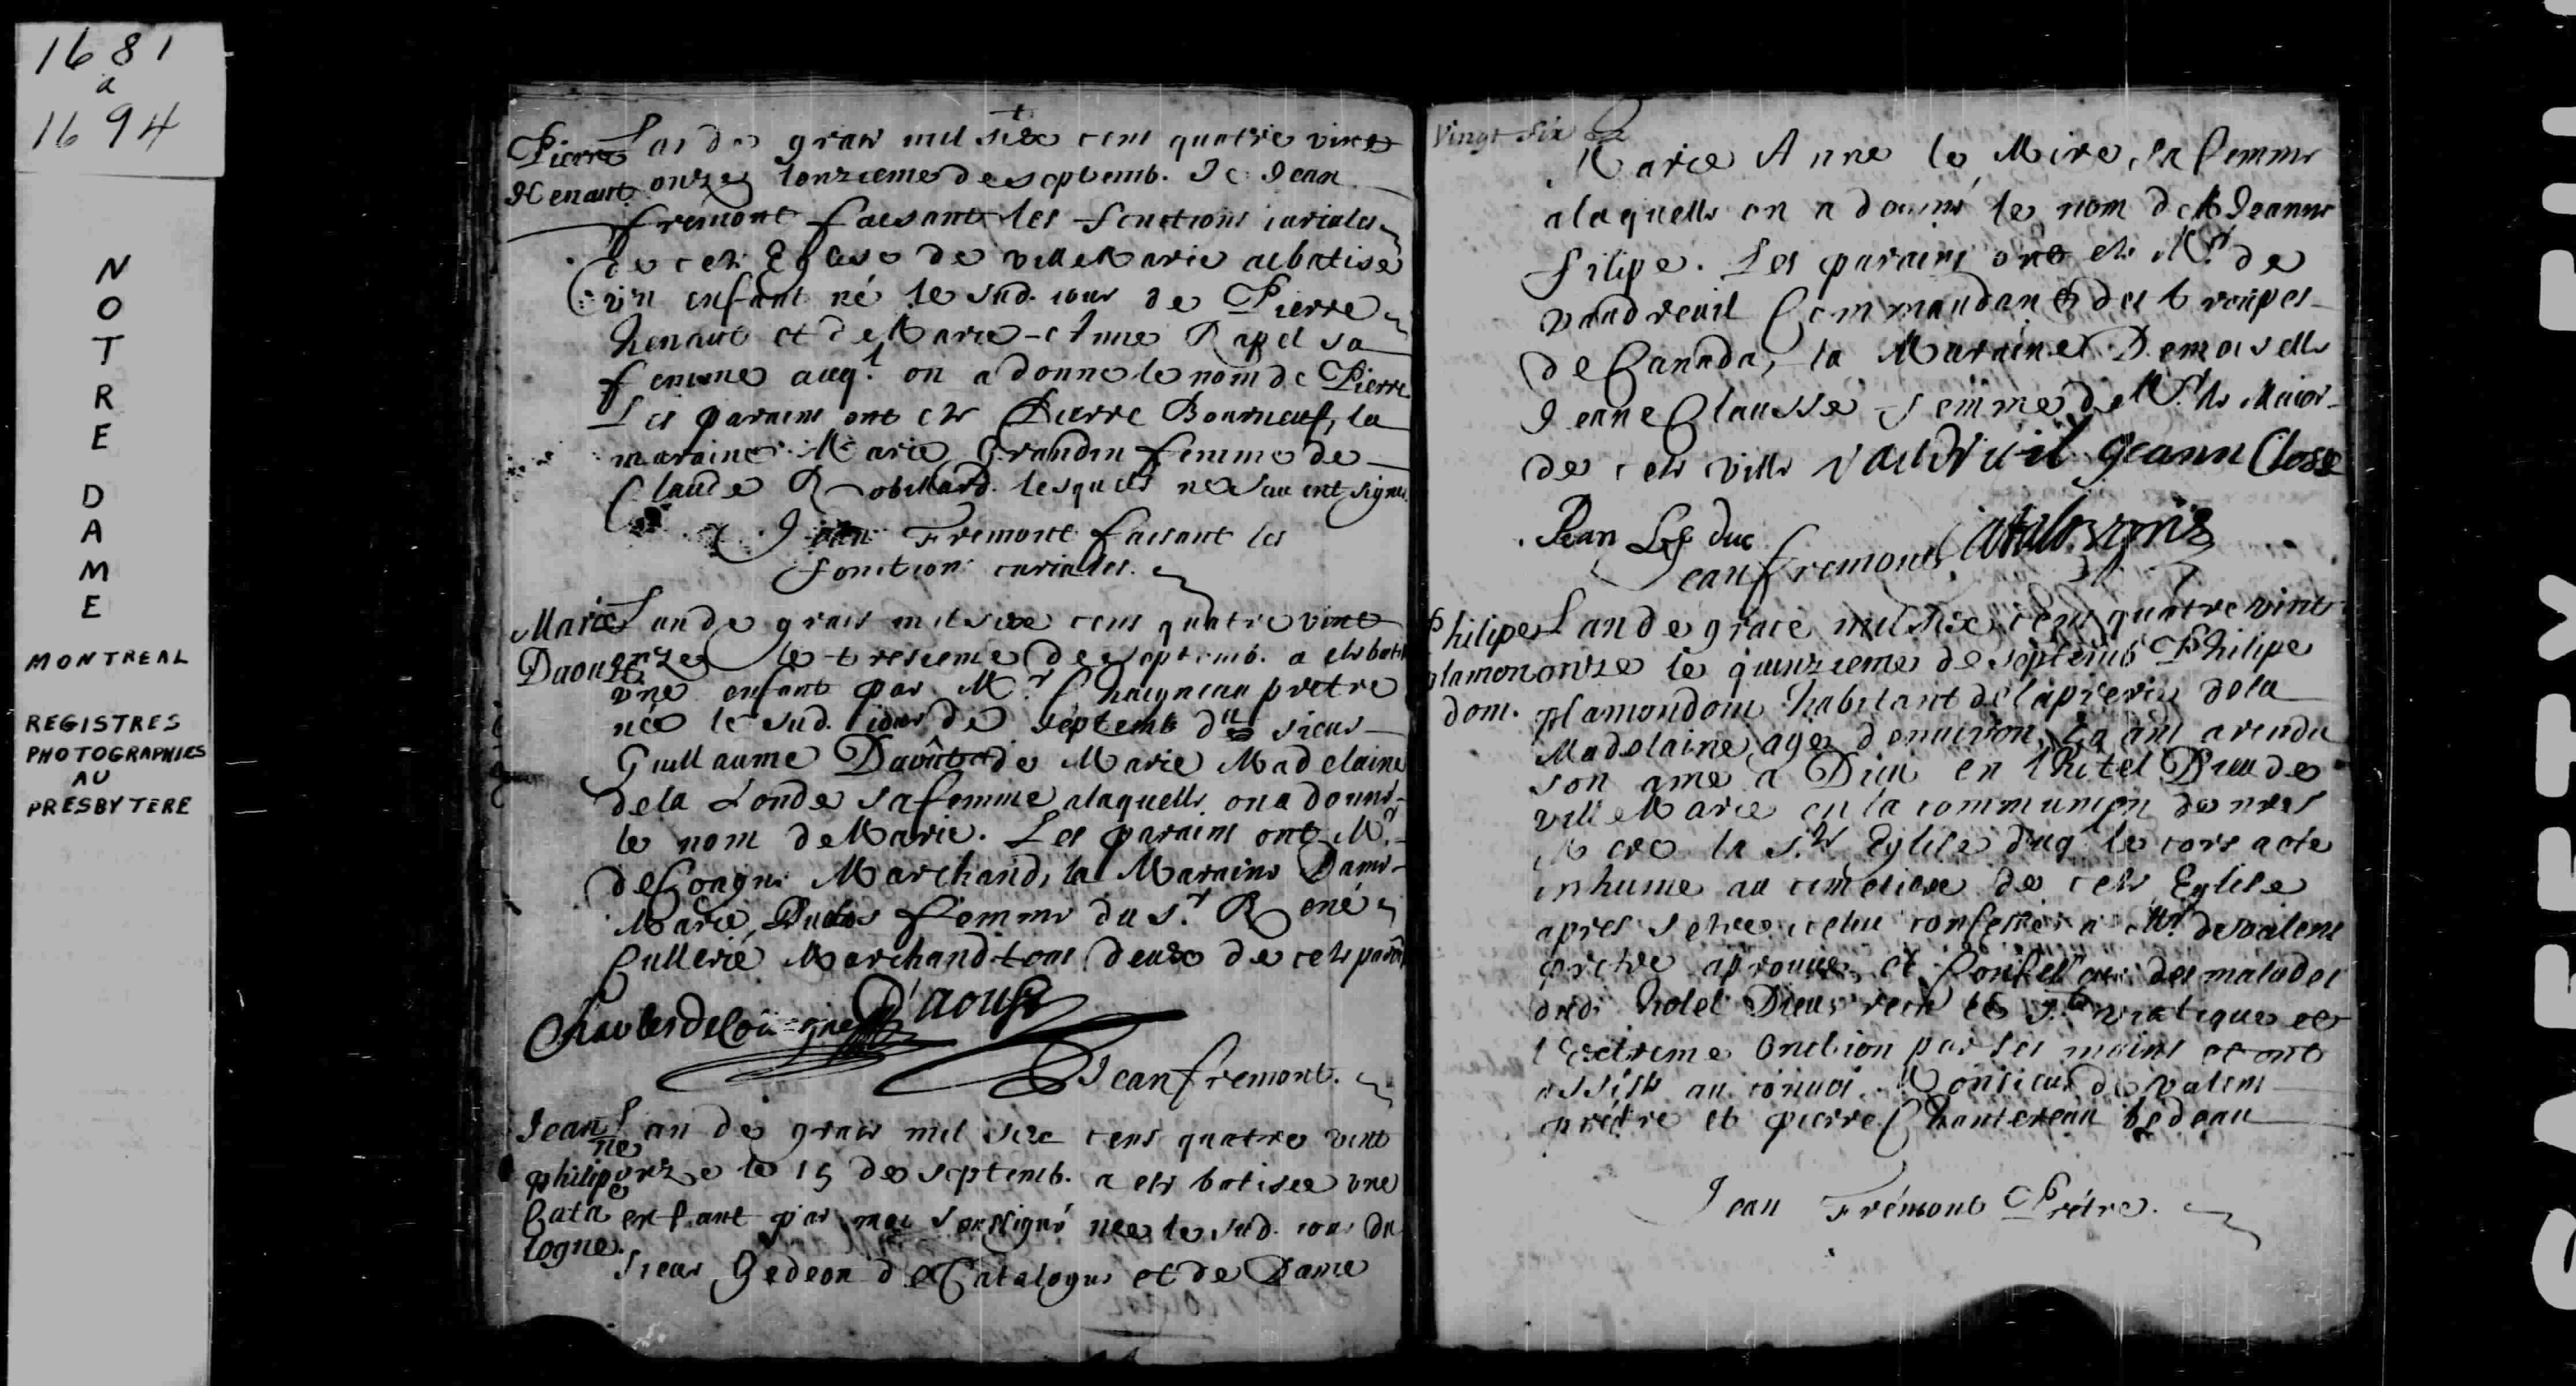 1681
a
1694
NOTRE
DAME
MONTREAL
REGISTRES
PHOTOGRAPHIES
AU
PRESBYTERE
Pierre
Henaut
Lan de grace mil sixe cens quatre vint
onze, lonzieme de septemb. Je Jean
fremont faisant les fonctions curiales
de cete Eglise de villeMarie ai batisé
vn enfant né le sud. iour de Pierre
henaut et de Marie-Anne Rapel sa
femme auq.l on a donné le nom de Pierre
Les parains ont eté Pierre Bourneuf, la
maraine Marie Grandin femme de
Claude Robillard. lesquels ne sauent signer
Jean Fremont faisant les
fonction curiales.
Marie
Daoust
Lan de grace mil sixe cens quatre vint
onze le tresieme de septemb. a eté bati
vne enfant par Mr Chaigneau pretre
née le sud. iour de septemb du sieur
Guillaume Daoût et de Marie Madelaine
de la Londe sa femme alaquelle on a donné
le nom de Marie. Les parains ont Mr.
de Coagne Marchand, la Maraine Dame
Marie femme du Sr. René
Cullerié Marchand tous deux de cete
Charles de Coüagne D'aoust
Jean fremont.
Jean
ne
philipe
Cata
logne.
Lan de grace mil sixe cens quatre vint
onze le 15 de septemb. a eté batisée vne
enfant par moi soussigné née le sud. iour du
Sieur Gedeon de Catalogne et de Dame
Vingt six
Marie Anne le Mire, sa femme
alaquelle on a donné le nom de Jeanne
filipe. Les parains ont eté Mr. de
vaudreuil Commandant des troupes
de Canada, la Maraine Demoiselle
Jeanne Clausse femme de Mr. le Maior
de cete ville vaudreuil Jeann Closse
Jean Le duc
Jean fremont Catalougne
Philipe
plamon
dom.
Lan de grace mil sixe cens quatre vint
onze le quinzieme de septemb Philipe
plamondom habitant de la prerie de la
Madelaine, agé d'enuiron ans a rendu
son ame a Dieu en lhotel Dieu de
villeMarie en la communion de nostre
Mere la Ste Eglise duq.l le cors a ete
inhumé au cimetiere de cete Eglise
apres s'etre confessé a Mr. de valens
pretre aprouué, et Confesseur des malades
dud. hotel Dieu, receu le St viatique et
l'Extreme Onction par ses mains et ont
assisté au conuoi Monsieur de valens
prêtre et pierre Chantereau bedeau
Jean Frémont Prétre.